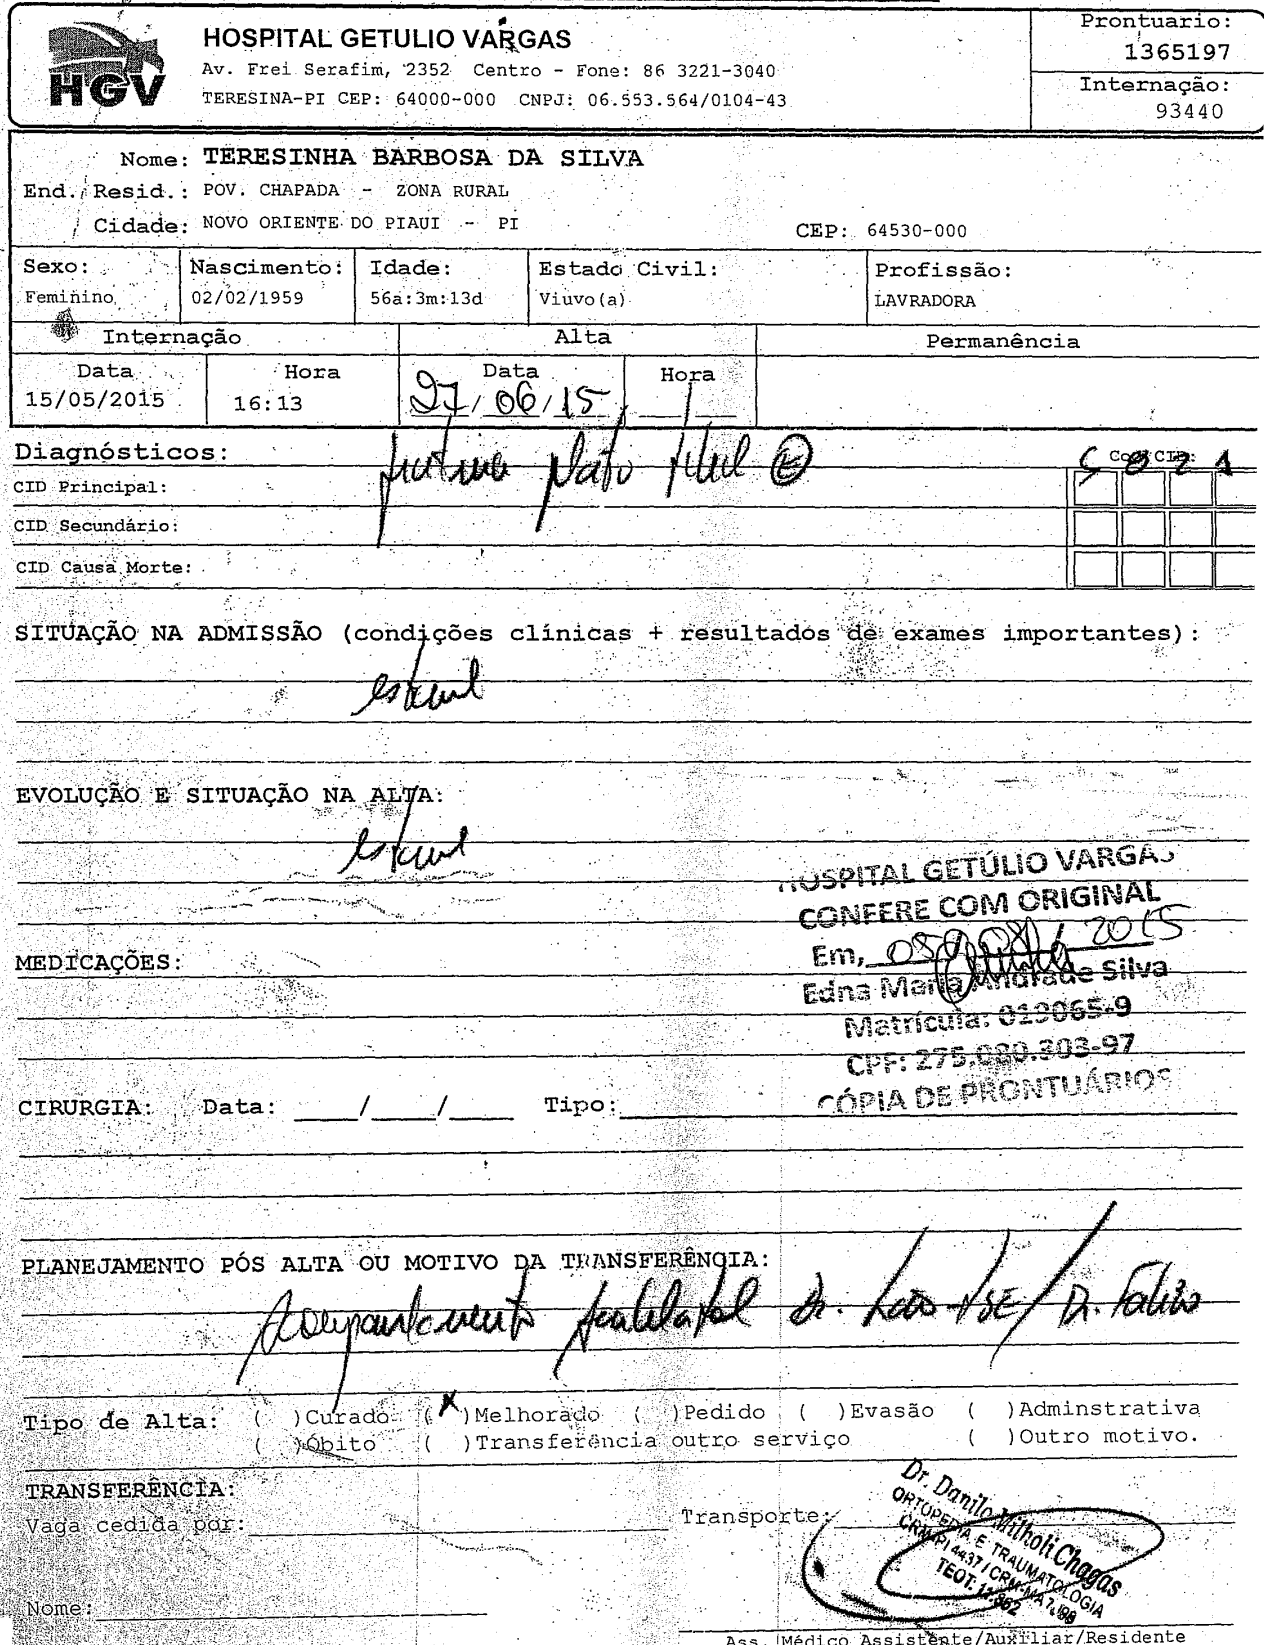 HOSPITAL GETULIO VARGAS
Av. Frei Serafim, 2352 Centro - Fone: 86 3221-3040
TERESINA-PI CEP: 64000-000 CNPJ: 06.553.564/0104-43
HGV
Prontuario:
1365197
Internação:
93440
Nome: TERESINHA BARBOSA DA SILVA
End. Resid.: POV. CHAPADA - ZONA RURAL
Cidade: NOVO ORIENTE DO PIAUI - PI CEP: 64530-000
Sexo: Nascimento: Idade: Estado Civil: Profissão:
Feminino 02/02/1959 56a:3m:13d Viuvo(a) LAVRADORA
Internação Alta Permanência
Data Hora Data Hora
15/05/2015 16:13 27/06/15
Diagnósticos: fratura plato tibial E
CID Principal: S 8 2 1
CID Secundário:
CID Causa Morte:
SITUAÇÃO NA ADMISSÃO (condições clínicas + resultados de exames importantes):
estavel
EVOLUÇÃO E SITUAÇÃO NA ALTA:
estavel
HOSPITAL GETÚLIO VARGAS
CONFERE COM ORIGINAL
Em, 05/08/2015
MEDICAÇÕES:
Edna Maria Andrade Silva
Matrícula: 019065-9
CPF: 275.080.303-97
CÓPIA DE PRONTUÁRIOS
CIRURGIA: Data: / / Tipo:
PLANEJAMENTO PÓS ALTA OU MOTIVO DA TRANSFERÊNCIA:
Acompanhamento ambulatorial Dr. / Dr. Fabio
Tipo de Alta: ( )Curado (X)Melhorado ( )Pedido ( )Evasão ( )Adminstrativa
( )Óbito ( )Transferência outro serviço ( )Outro motivo.
TRANSFERÊNCIA:
Vaga cedida por: Transporte:
Dr. Danilo Chagas
ORTOPEDIA E TRAUMATOLOGIA
CRM-PI 4437 / CRM-MA
TEOT:
Nome:
Ass. Médico Assistente/Auxiliar/Residente